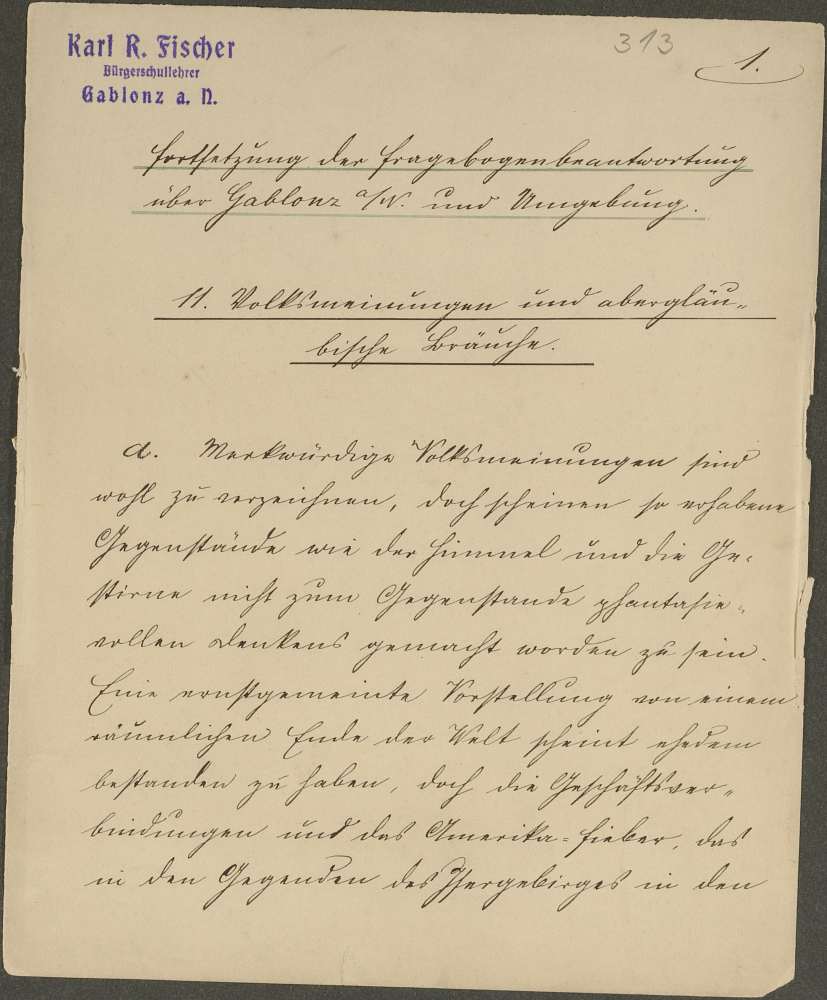 Karl R. Fischer
Bürgerschullehrer
Gablonz a. N.
313
1.
Fortsetzung der Fragebogenbeantwortung
über Gablonz a/N. und Umgebung.
11. Volksmeinungen und abergläu-
bische Bräuche.
a. Merkwürdige Volksmeinungen sind
wohl zu verzeichnen, doch scheinen so erhabene
Gegenstände wie der Himmel und die Ge-
stirne nicht zum Gegenstande phantasie-
vollen Denkens gemacht worden zu sein.
Eine ernstgemeinte Vorstellung von einem
räumlichen Ende der Welt scheint ehedem
bestanden zu haben, doch die Geschäftsver-
bindungen und das Amerika-Fieber, das
in den Gegenden des Isergebirges in den